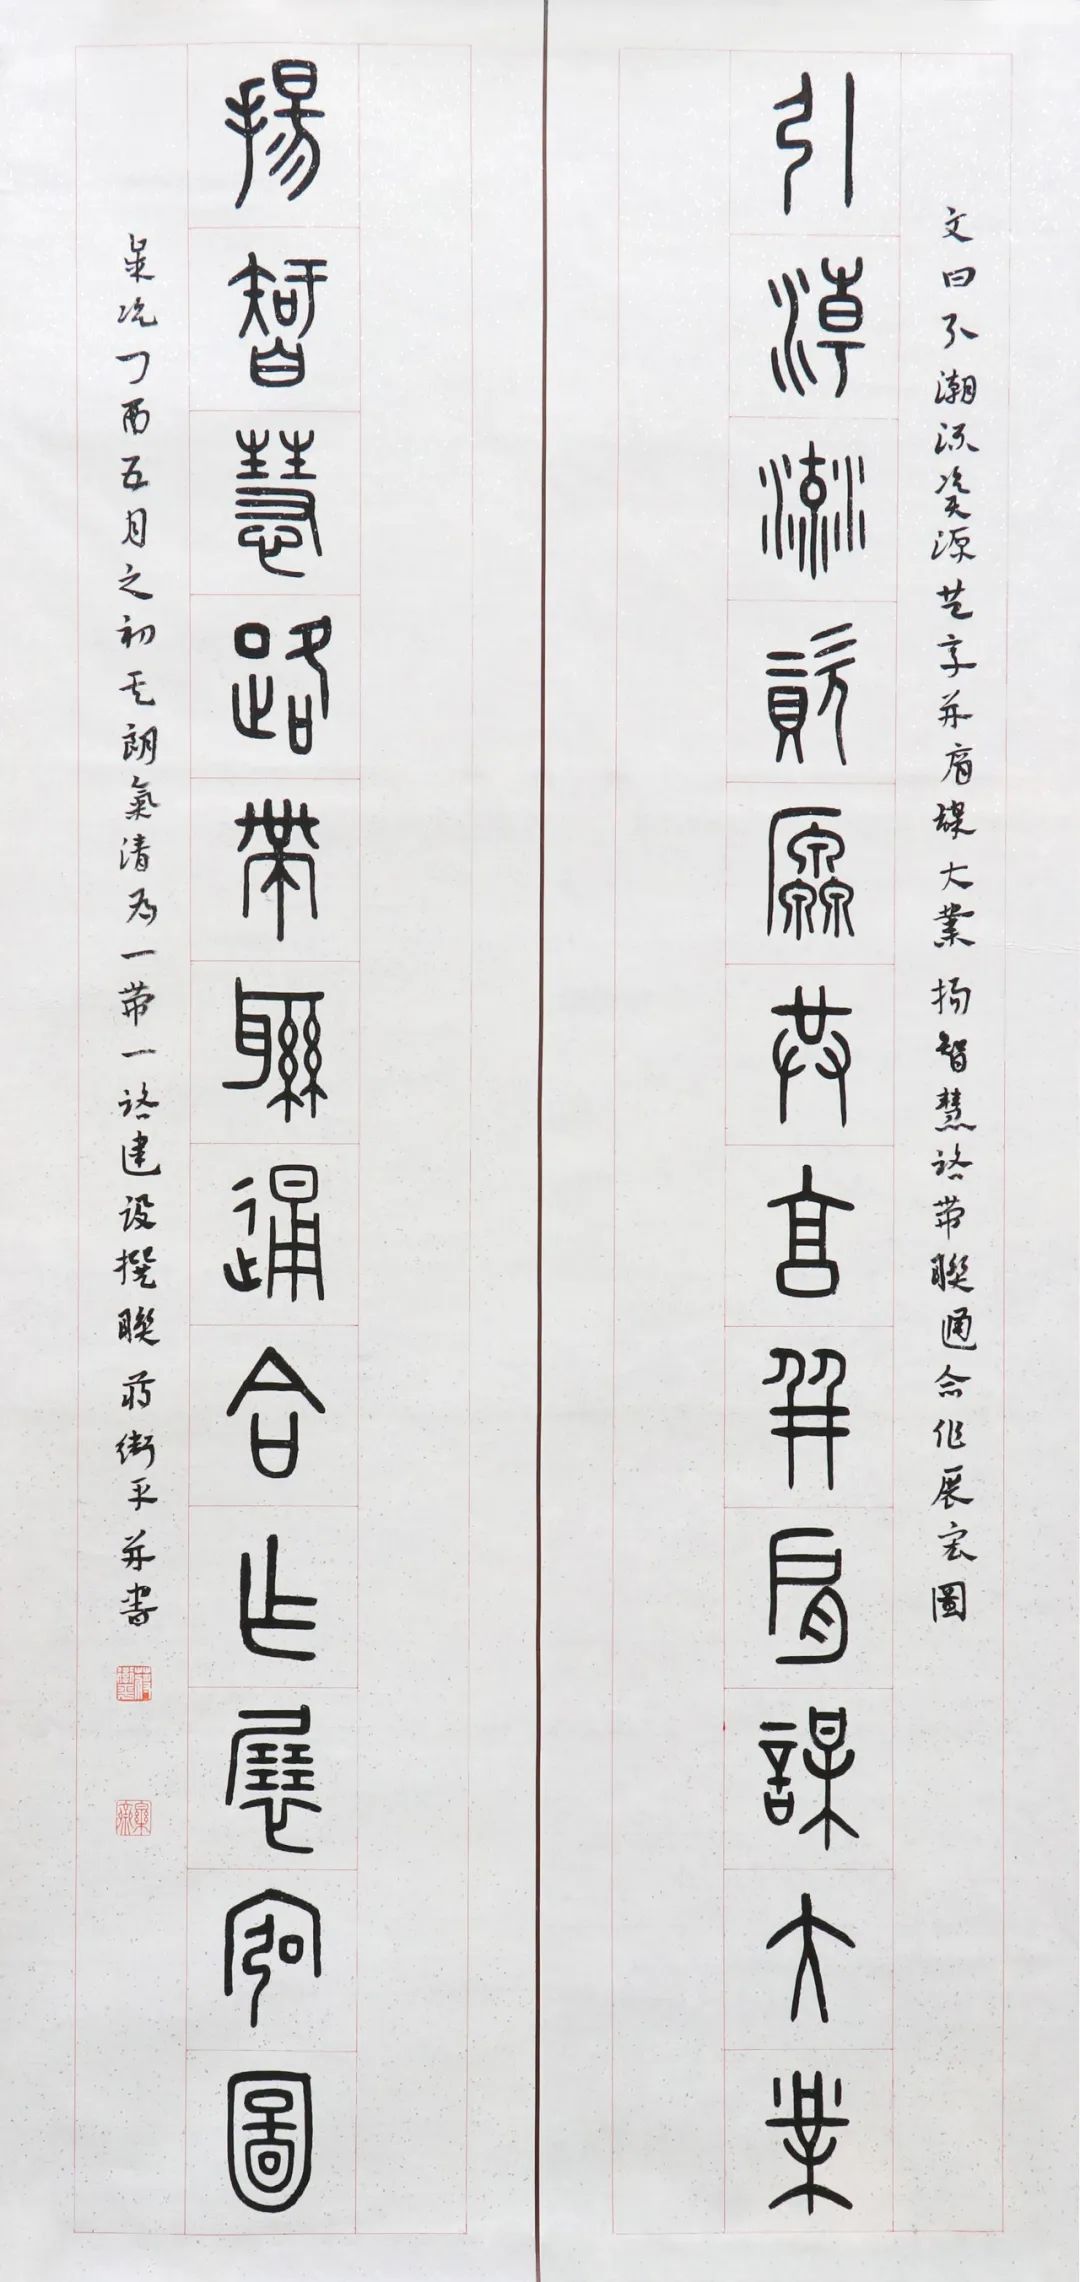 文曰引潮流資源共享并肩謀大業揚智慧路帶聯通合作展宏圖
引潮流資源共享并肩謀大業
揚智慧路帶聯通合作展宏圖
歲次丁酉五月之初天朗氣清為一帶一路建設撰聯蔣衛平并書